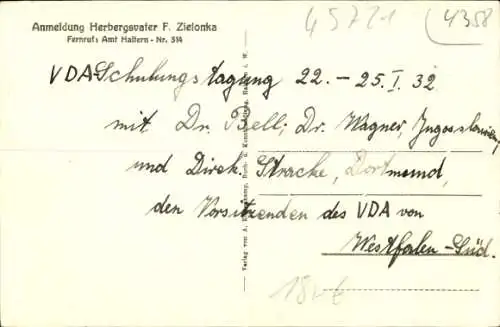 Anmeldung Herbergsvater F. Zielonka
Fernruf: Amt Haltern - Nr. 314
45721
4358
VDA-Schulungstagung 22. - 25. I. 32
mit Dr. Bell; Dr. Wagner, Jugoslavien,
und Direk. Stracke, Dortmund,
den Vorsitzenden des VDA von
Westfalen-Süd.
Verlag von A.
18,- €